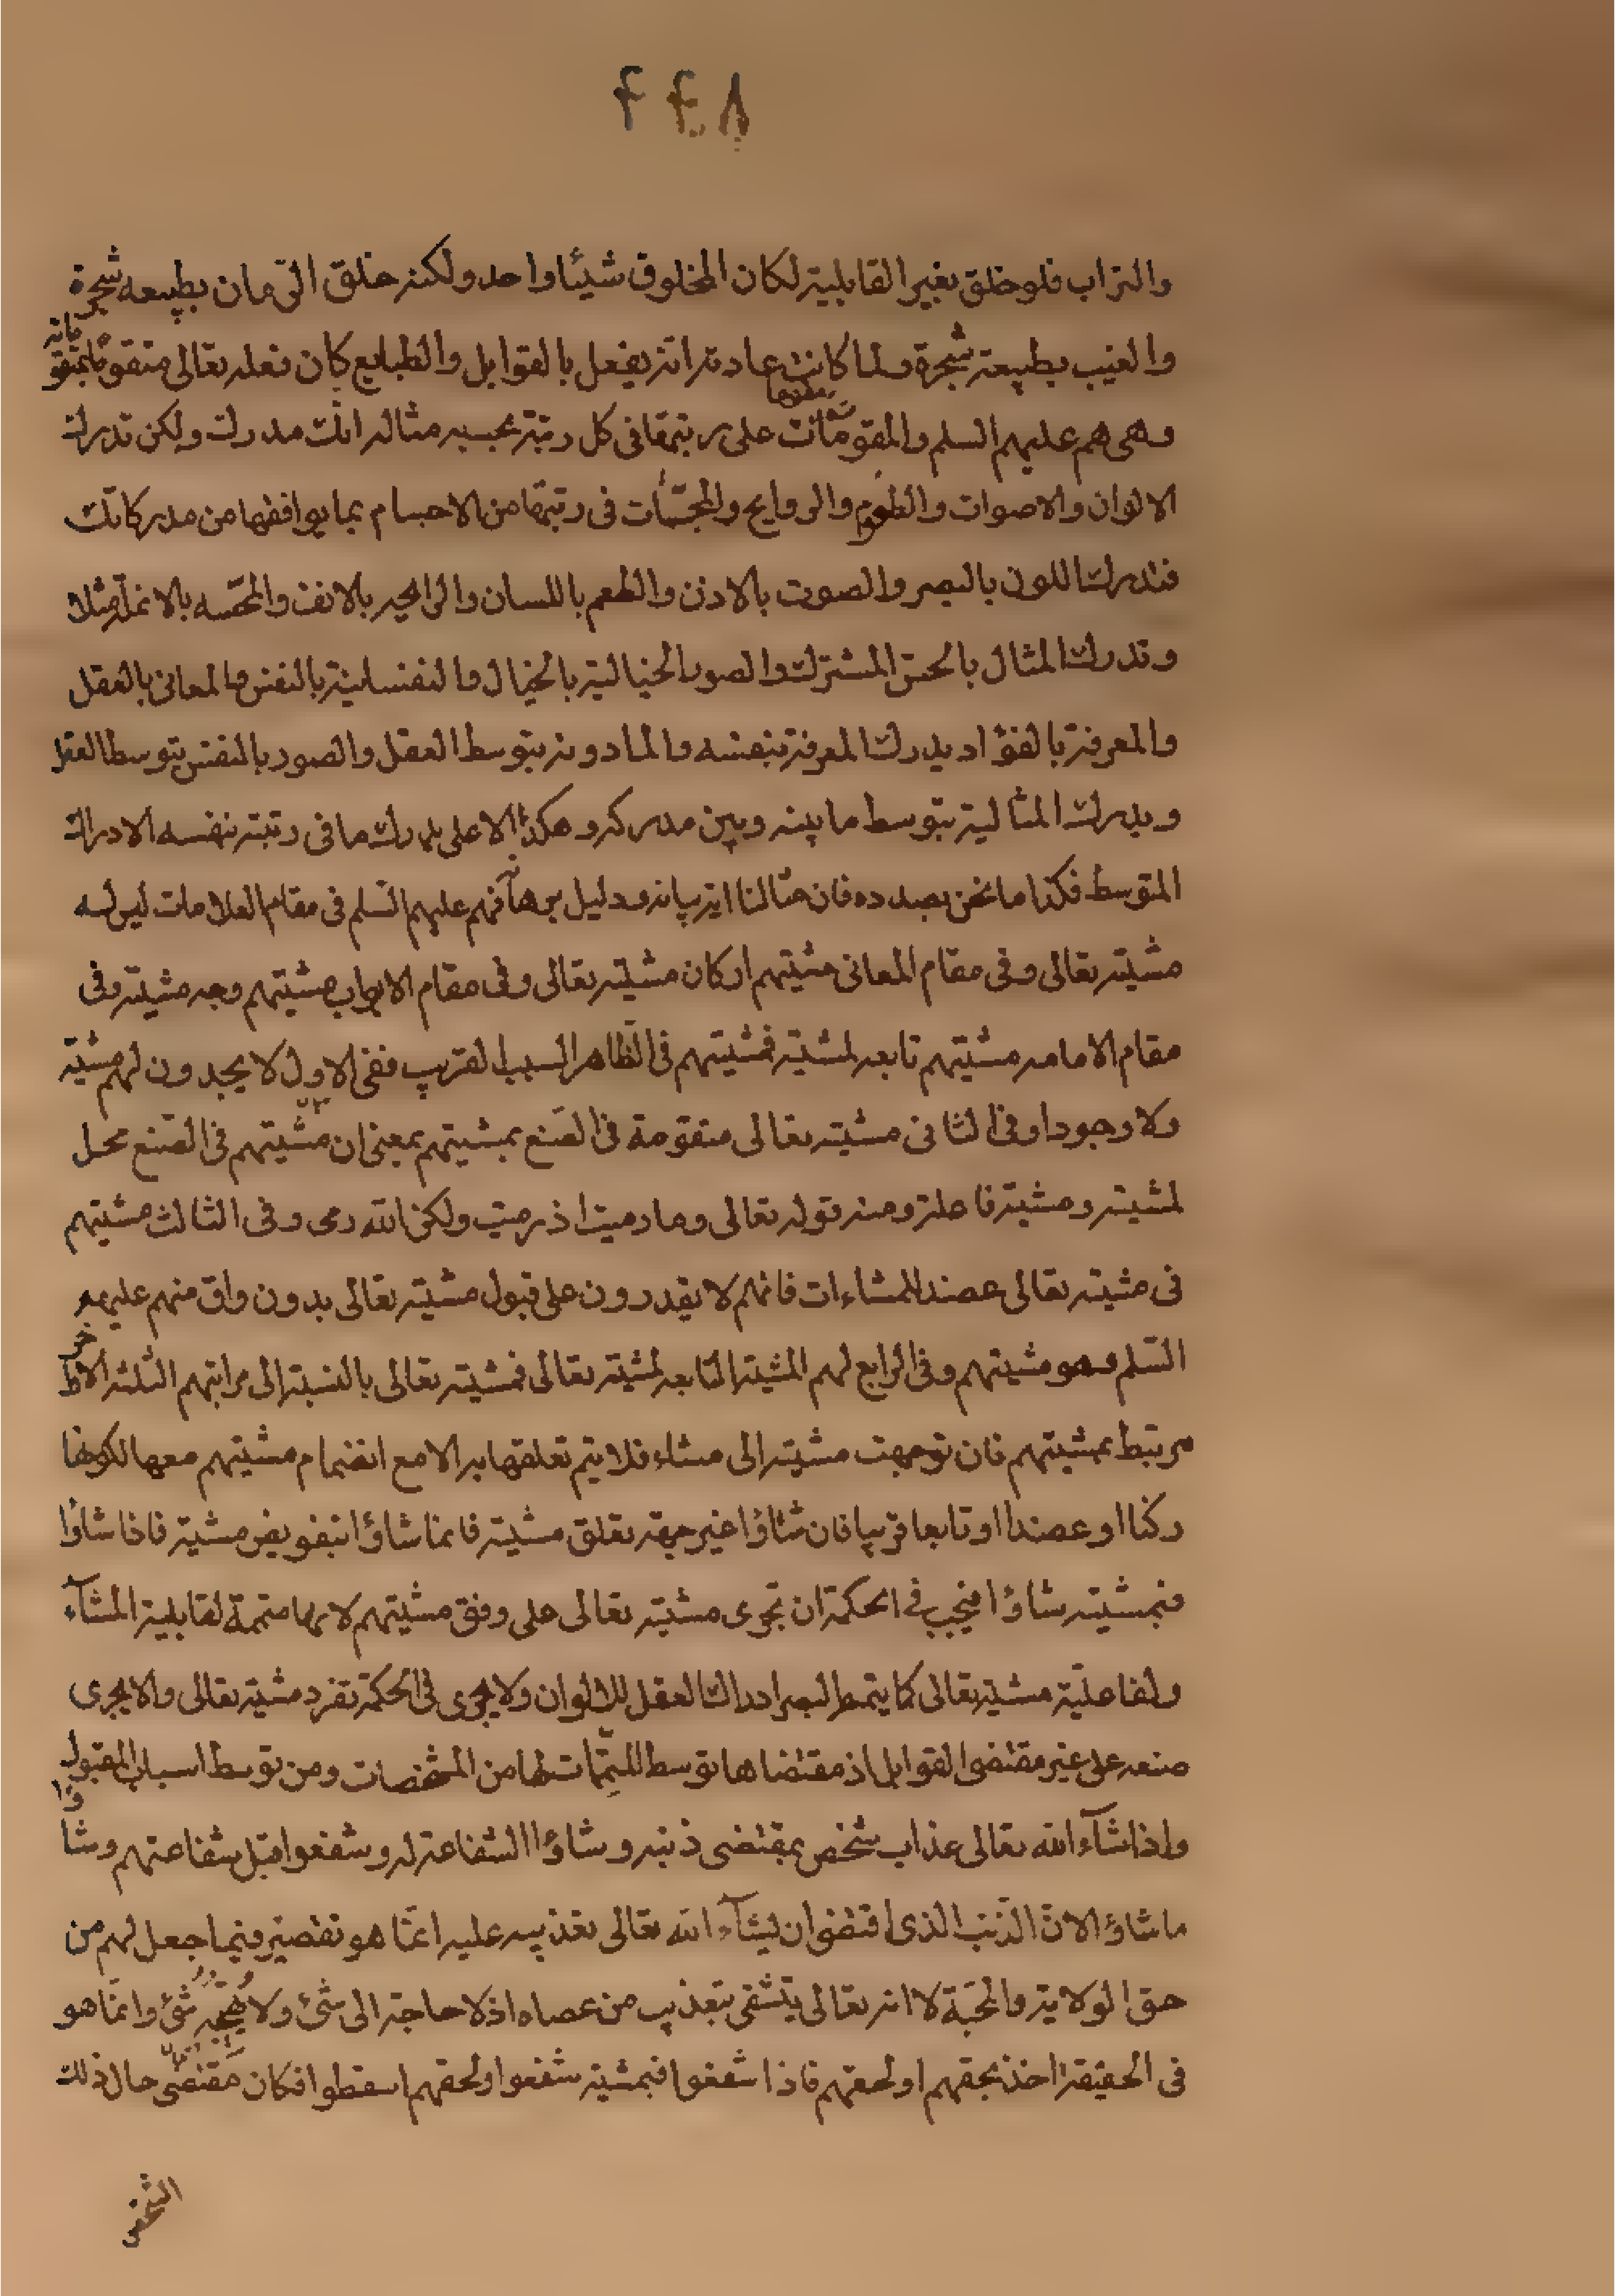 ۴۴۸
والتراب فلو خلق بغير القابلية لكان المخلوق شيئا واحد ولكنه خلق الرمان بطبيعه شجرة
والعنب بطبيعة شجرة ولما كانت عادته انه يفعل بالقوابل والطبايع كان فعله تعالى متقوما بمتقوماته
وهى هم عليهم السلم والمقومات على رتبتها فى كل رتبة بحسبه مثاله انك مدرك ولكن تدرك
الالوان والاصوات والطعوم والروايح والمجسّات فى رتبتها من الاجسام بما يوافقها من مدركاتك
فتدرك اللون بالبصر والصوت بالاذن والطعم باللسان والرايحه بالانف والمجسّه بالانملة مثلا
وتدرك المثال بالحس المشترك والصور الخيالية بالخيال والنفسانية بالنفس والمعانى بالعقل
والمعرفة بالفؤاد يدرك المعرفة بنفسه والمادونه بتوسط العقل والصور بالنفس بتوسط العقل
ويدرك المثالية بتوسط ما بينه وبين مدركه وهكذا الاعلى يدرك ما فى رتبته بنفسه الادراك
المتوسط فكذا ما نحن بصدده فان مثالنا اية بيانه ودليل برهانه فهم عليهم السّلم فى مقام العلامات ليس له
مشيته تعالى وفى مقام المعانى مشيتهم اركان مشيته تعالى وفى مقام الابواب مشيتهم وجه مشيته وفى
مقام الامامه مشيتهم تابعه لمشيته فمشيتهم فى الظاهر السبب القريب ففى الاول لا يجدون لهم مشيّة
ولا وجودا وفى الثانى مشيته تعالى متقومة فى الصّنع بمشيتهم بمعنى ان مشيتهم فى الصّنع محل
لمشيته ومشيته فاعلة ومنه قوله تعالى وما رميت اذ رميت ولكن الله رمى وفى الثالث مشيتهم
فى مشيته تعالى عضد للمشاءات فانهم لا يقدرون على قبول مشيته تعالى بدون واق منهم عليهم
السّلم وهو مشيتهم وفى الرابع لهم المشية التابعه لمشيته تعالى فمشيته تعالى بالنسبة الى مراتبهم الثلثه الاخر
مرتبط بمشيتهم فان توجهت مشيته الى مشاء فلا يتم تعلقها به الا مع انضمام مشيتهم معها لكونها
ركنا او عضدا او تابعا قريبا فان شاؤا غير جهة تعلق مشيته فانما شاؤا بتفويض مشيته فاذا شاؤا
فبمشيته شاؤا فيجب فى الحكمة ان تجرى مشيته تعالى على وفق مشيتهم لانها متممة لقابلية المشآء
ولفاعليّة مشيته تعالى كما يتمم البصر ادراك العقل للالوان ولا يجرى فى الحكمة تفرد مشيته تعالى والا يجرى
صنعه على غير مقتضى القوابل اذ مقتضاها توسط المتممات لها من المشخصات ومن توسط اسباب المقبول
واذا شآء الله تعالى عذاب شخص بمقتضى ذنبه وشاؤا الشفاعة له وشفعوا قبل شفاعتهم وشا
ما شاؤا لانّ الذّنب الذى اقتضى ان يشآء الله تعالى تعذيبه عليه انّما هو تقصير فيما جعل لهم من
حق الولاية والمحبّة لا انه تعالى يتشفى بتعذيب من عصاه اذ لا حاجة الى شئ ولا شئ وانّما هو
فى الحقيقة اخذ بحقهم او لحقهم فاذا شفعوا فبمشيته شفعوا ولحقهم اسقطوا فكان مقتضى حال ذلك
الشخص